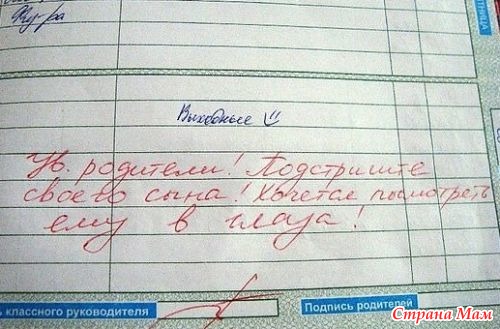 Физ-ра
Выходные
Ув. родители! Подстригите
своего сына! Хочется посмотреть
ему в глаза!
классного руководителя
Подпись родителей
Страна Мам